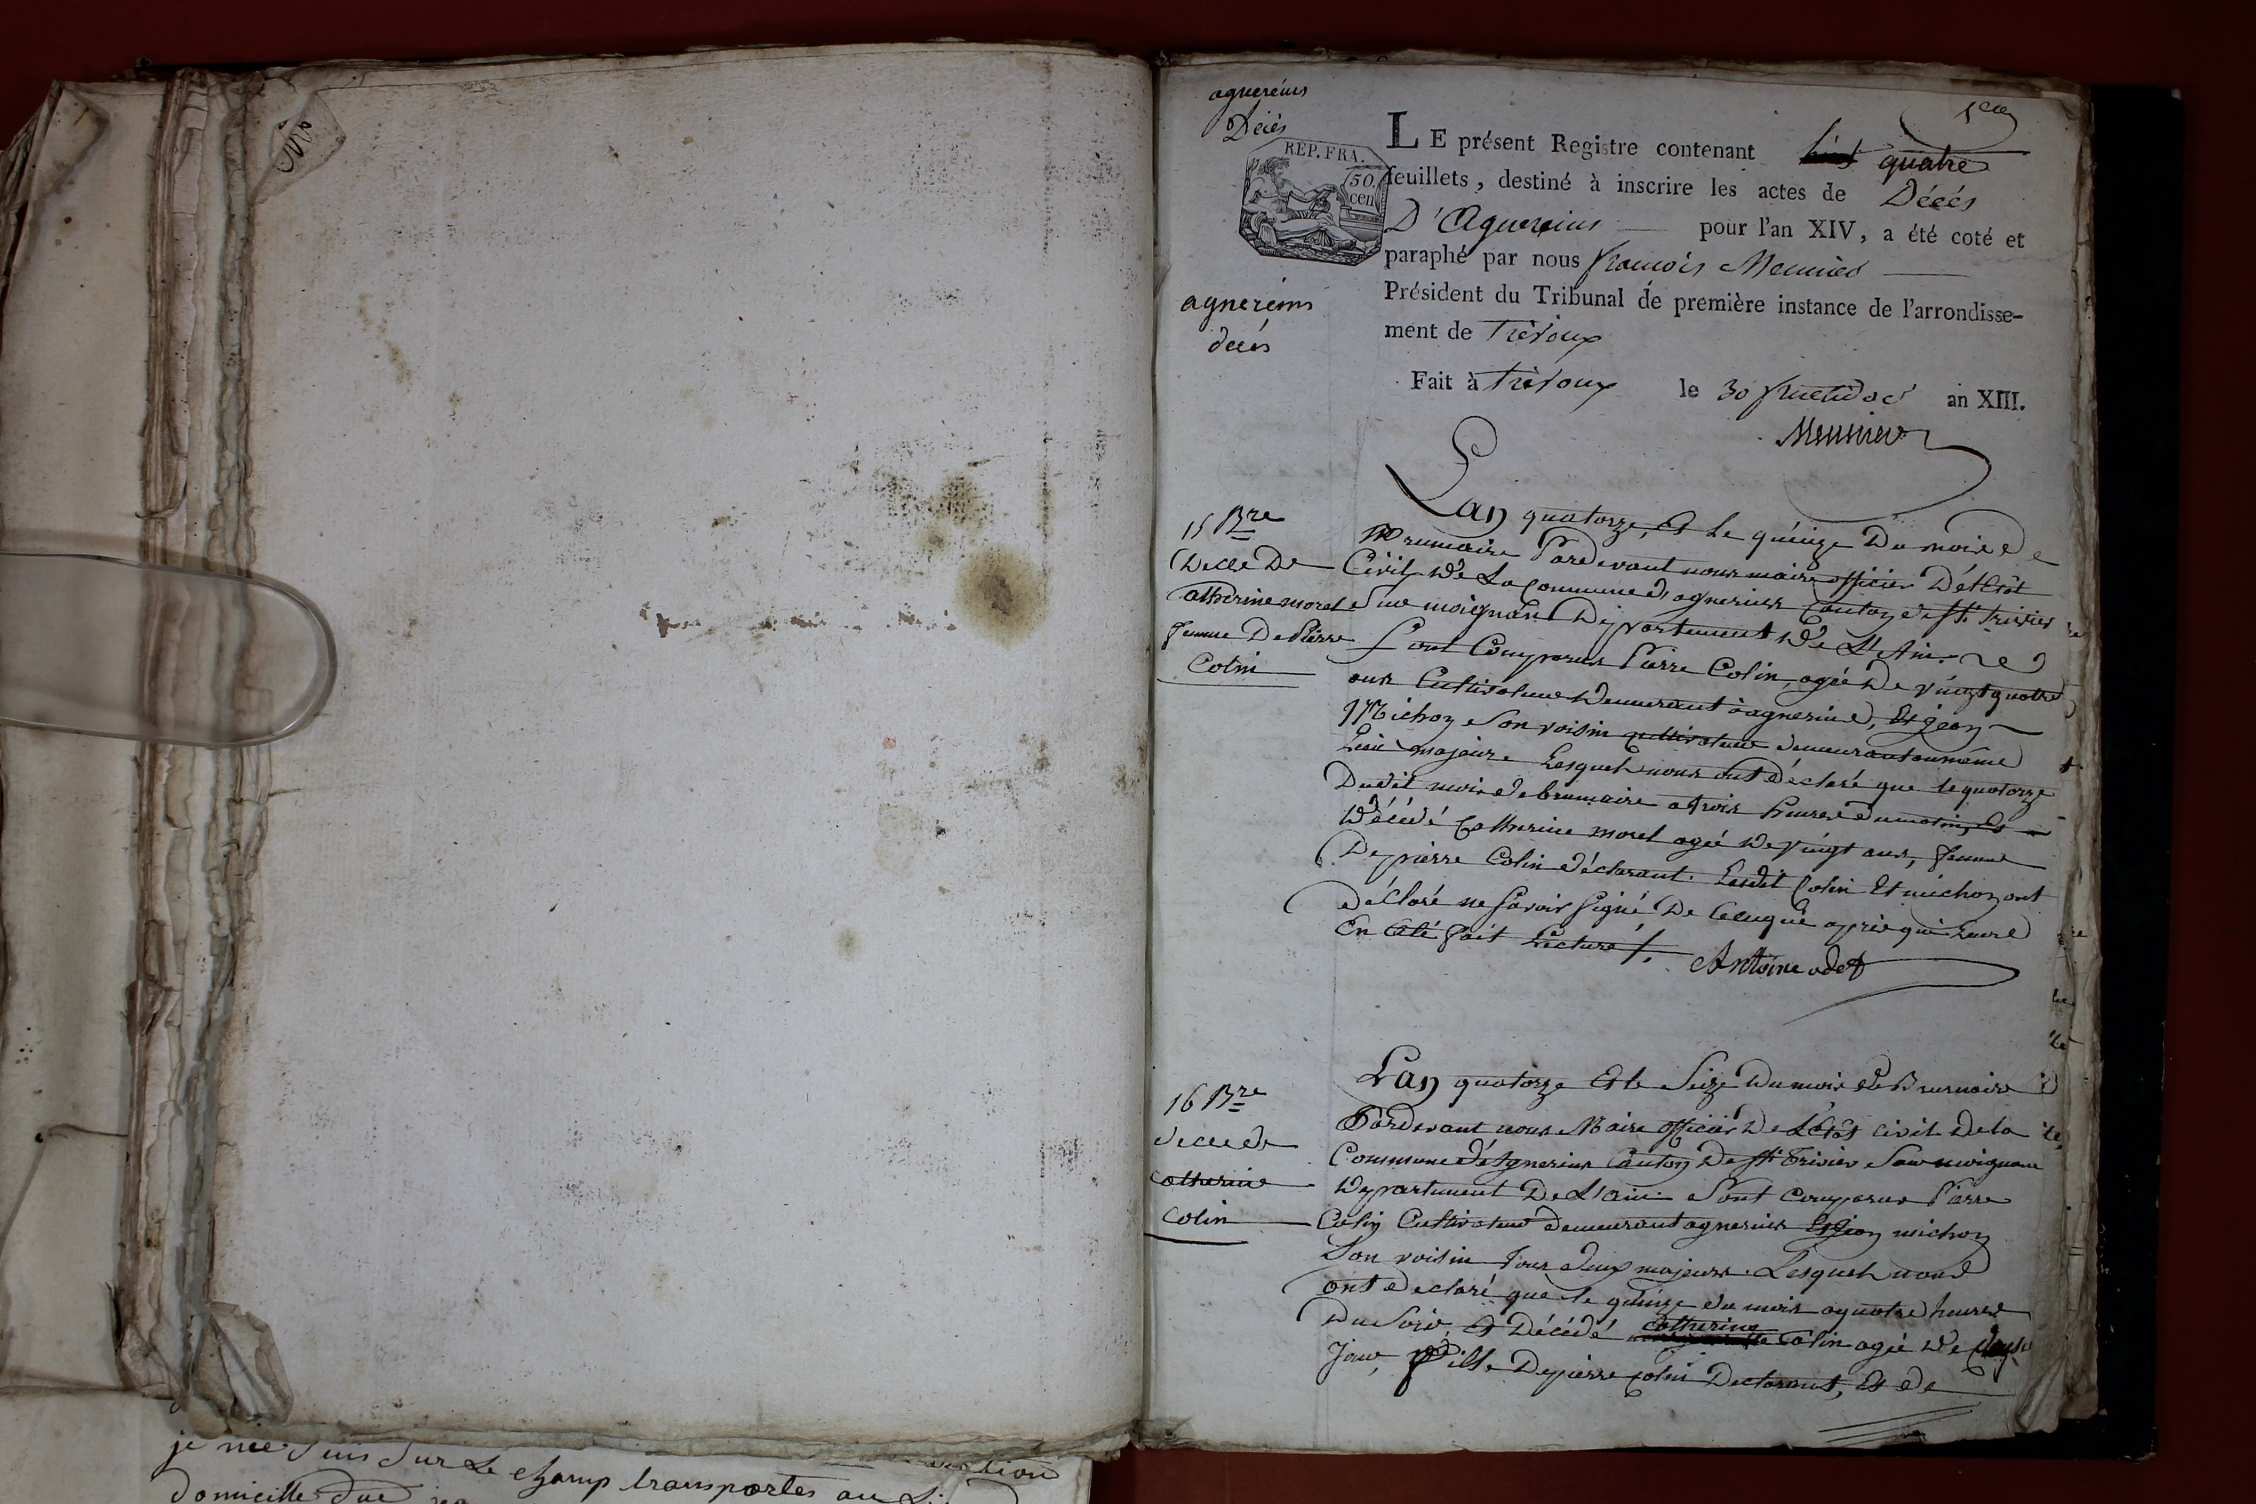 agnereins
Décès
REP. FRA.
50
cen
1er
LE présent Registre contenant quatre
feuillets, destiné à inscrire les actes de Décés
D'Agnereins pour l'an XIV, a été coté et
paraphé par nous françois Meunier
Président du Tribunal de première instance de l'arrondisse-
ment de Trévoux
Fait à Trévoux le 30 fructidor an XIII.
Meunier
agnereins
decés
15 Bre
Decce De
Catherine morel
femme De Pierre
Colin
Lan quatorze, et le quinze Du mois de
Brumaire Pardevant nous maire officier D'Etat
Civil De La Commune d'agnereins Canton de St. Trivier
Sur moignans Département De L'Ain
Sont Comparus Pierre Colin, agée De vingt quatre
ans Cultivateur Demeurant à agnereins, et jean
Michon Son voisin cultivateur demeurant au même
Lieu majeurs Lesquels nous ont déclaré que le quatorze
Dudit mois de brumaire a trois heures du matin, est
Décédé Catherine morel agée De vingt ans, femme
De pierre Colin déclarant. Lesdit Colin Et michon ont
déclaré ne Savoir Signé De Ce enquis après qui Leure
En Eté fait Lecture /.
Antoine odet
16 Bre
decce de
Catherine
Colin
Lan quatorze et le Seize Du mois de Brumaire
Pardevant nous Maire officier De L'Etat civil De la
Commune d'Agnereins Canton De St Trivier Sur moignans
Département De L'ain Sont comparus Pierre
Colin Cultivateur demeurant agnereins Et jean michon
Son voisin tous deux majeurs. Lesquels nous
ont déclaré que le quinze du mois a quatre heures
Du Soir, est Décédé catherine Colin agée De
Jour, fille De pierre Colin Declarant, et de
je me Suis Sur Le champ transportés au
Domicille due